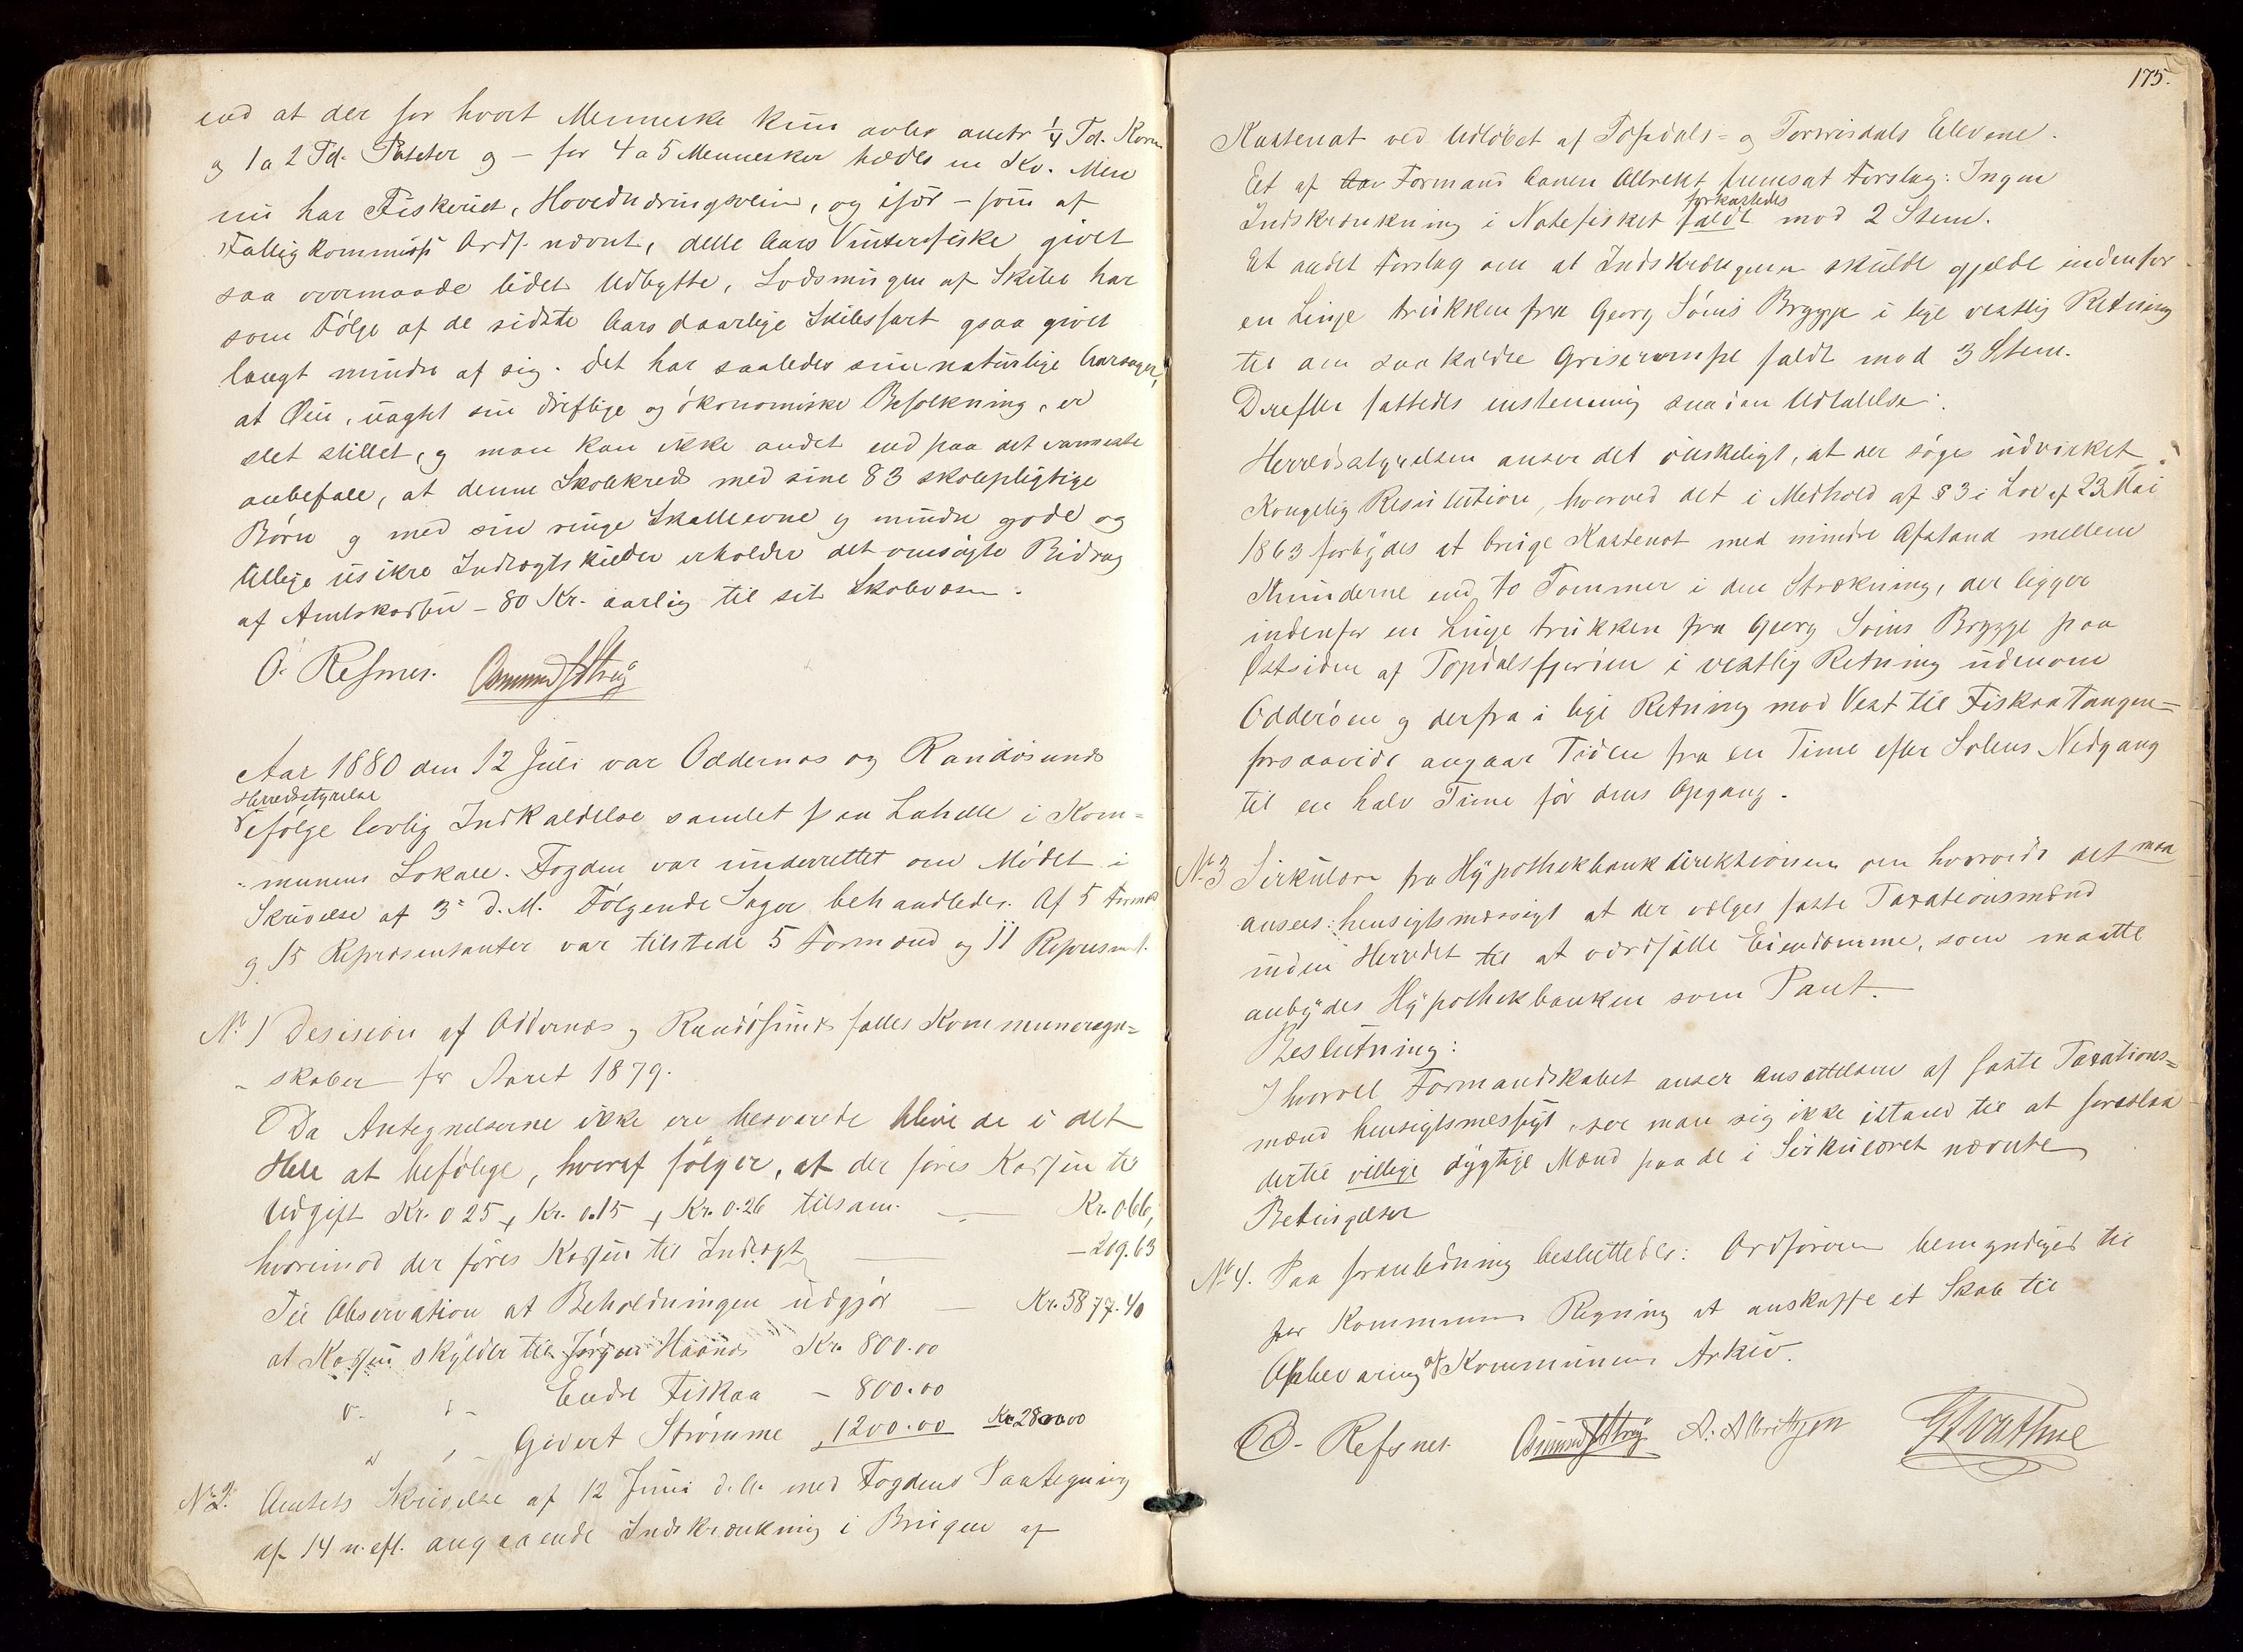 end at der for hvert Menneske kun avles omtr ¼ Td. Korn
og 1 a 2 Td. Poteter og – for 4 a 5 Mennesker fødes en Ko. Men
nu har Fiskeriet, Hovednæringsveien, og især – som af
Fattigkommiss. Ordf. nævnt, dette Aars Vinterfiske givet
saa overmaade lidet Udbytte, Lodsningen af Skibe har
som Følge af de sidste Aars daarlige Skibsfart ogsaa givet
langt mindre af sig. Det har saaledes sine naturlige Aarsager,
at Øen, uagtet sin driftige og økonomiske Befolkning, er
slet stillet, og man kan ikke andet end paa det varmeste
anbefale, at denne Skolekreds med sine 83 skolepligtige
Børn og med sin ringe Skatteevne og mindre gode og
tillige usikre Indtægtskilder erholder det omsøgte Bidrag
af Amtskassen – 80 Kr. aarlig til sit Skolevæsen.
O. Refsnes. Osmund
Aar 1880 den 12 Juli var Oddernes og Randøsunds
Herredsstyrelse
ifølge lovlig Indkaldelse samlet paa Lahelle i Kom=
munens Lokale. Fogden var underrettet om Mødet i
Skrivelse af 3 d. M. Følgende Sager behandledes. Af 5 Formænd
og 15 Repræsentanter var tilstede 5 Formænd og 11 Repræsent.
No 1 Desision af Oddernes og Randøsunds fælles Kommuneregn=
skaber for Aaret 1879.
Da Antegnelserne ikke ere besvarede blive de i det
Hele at befølge, hvoraf følger, at der føres Kassen til
Udgift Kr. 0 25 + Kr. 0.15 + Kr. 0.26 tilsam. — Kr. 0.66,
hvorimod der føres Kassen til Indtægt — – 209.63
Til Observation at Beholdningen udgjør — Kr. 5877.40
at Kassen skylder til Jørgen Haanes Kr. 800.00
" " Endre Fiskaa – 800.00
" " Govert Strømme 1200.00 Kr. 2800.00
No 2. Amtets Skrivelse af 12 Juni d. A. med Fogdens Paategning
af 14 n. eft. angaaende Indskrænkning i Brugen af
175.
Kastenot ved Udløbet af Topdals- og Torrisdals Elvene.
Et af Formand Aanen Albrekt. fremsat Forslag: Ingen
forkastedes
Indskrænkning i Notefisket faldt mod 2 Stem.
Et andet Forslag om at Indskrænkningen skulde gjælde indenfor
en Linje trukken fra Georg Søms Brygge i lige vestlig Retning
til den saakaldte Griserumpe faldt mod 3 Stem.
Derefter fattedes enstemmig saadan Udtalelse:
Herredsstyrelsen anser det ønskeligt, at der søges udvirket
Kongelig Resolution, hvorved det i Medhold af § 3 i Lov af 23 Mai
1863 forbydes at bruge Kastenot med mindre Afstand mellem
Knuderne end to Tommer i den Strækning, der ligger
indenfor en Linje trukken fra Georg Søms Brygge paa
Østsiden af Topdalsfjorden i vestlig Retning udenom
Odderøen og derfra i lige Retning mod Vest til Fiskaatangen –
forsaavidt angaar Tiden fra en Time efter Solens Nedgang
til en halv Time før dens Opgang.
No 3 Sirkulære fra Hypothekbankdirektionen om hvorvidt det maa
ansees hensigtsmæssigt at der vælges faste Taxationsmænd
inden Herredet til at værdsætte Eiendomme, som maatte
anbydes Hypothekbanken som Pant.
Beslutning:
Ihvorvel Formandskabet anser Ansættelsen af faste Taxations=
mænd hensigtsmessigt, ser man sig ikke istand til at foreslaa
dertil villige dygtige Mænd paa de i Sirkulæret nævnte
Betingelser
No 4. Paa foranledning besluttedes: Ordføreren bemyndiges til
for Kommunens Regning at anskaffe et Skab til
Opbevaring af Kommunens Arkiv.
O. Refsnes. Osmund A. Albretsen